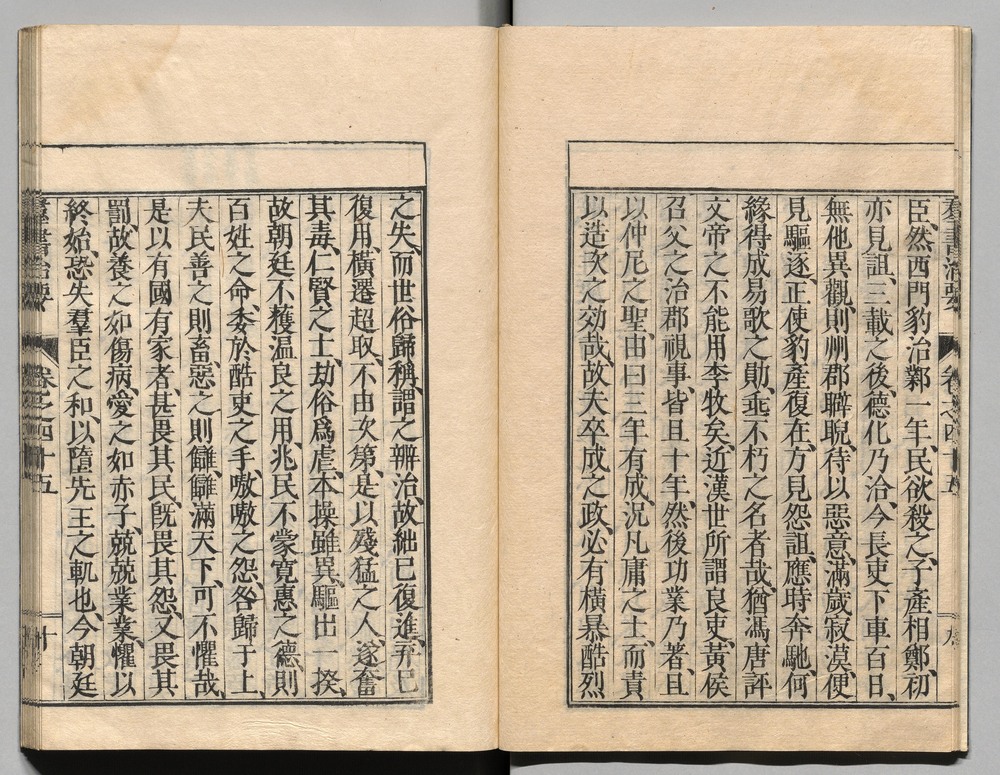 羣書治要 卷之四十五 九
臣、然西門豹治鄴一年、民欲殺之、子產相鄭、初
亦見詛、三載之後、德化乃洽、今長吏下車百日、
無他異觀、則州郡睥睨、待以惡意、滿歲寂漠、便
見驅逐、正使豹產復在、方見怨詛、應時奔馳、何
緣得成易歌之勛、垂不朽之名者哉、猶馮唐評
文帝之不能用李牧矣、近漢世所謂良吏、黃侯
召父之治郡視事、皆且十年、然後功業乃著、且
以仲尼之聖、由曰三年有成、況凡庸之士、而責
以造次之効哉、故夫卒成之政、必有橫暴酷烈
之失、而世俗歸稱、謂之辨治、故絀已復進、弃已
復用、橫遷超取、不由次第、是以殘猛之人、遂奮
其毒、仁賢之士、劫俗爲虐、本操雖異、驅出一揆、
故朝廷不獲溫良之用、兆民不蒙寬惠之德、則
百姓之命、委於酷吏之手、嗷嗷之怨、咎歸于上、
夫民善之則畜、惡之則讎、讎滿天下、可不懼哉、
是以有國有家者、甚畏其民、旣畏其怨、又畏其
罰、故養之如傷病、愛之如赤子、兢兢業業、懼以
終始、恐失羣臣之和、以墮先王之軌也、今朝廷
羣書治要 卷之四十五 十